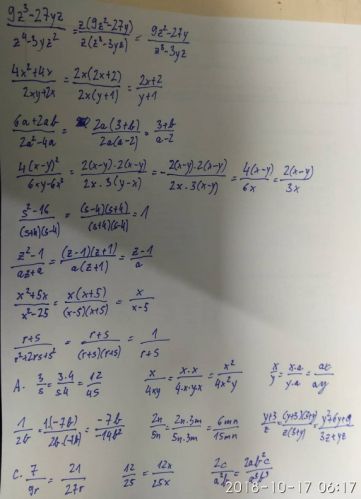 (9z³-27yz)/(z⁴-3yz²) = z(9z²-27y)/z(z³-3yz) = (9z²-27y)/(z³-3yz)
(4x²+4x)/(2xy+2x) = 2x(2x+2)/2x(y+1) = (2x+2)/(y+1)
(6a+2ab)/(2a²-4a) = 2a(3+b)/2a(a-2) = (3+b)/(a-2)
4(x-y)²/(6xy-6x²) = 2(x-y)·2(x-y)/2x·3(y-x) = -2(x-y)·2(x-y)/2x·3(x-y) = 4(x-y)/6x = 2(x-y)/3x
(s²-16)/(s+4)(s-4) = (s-4)(s+4)/(s+4)(s-4) = 1
(z²-1)/(az+a) = (z-1)(z+1)/a(z+1) = (z-1)/a
(x²+5x)/(x²-25) = x(x+5)/(x-5)(x+5) = x/(x-5)
(r+s)/(r²+2rs+s²) = (r+s)/(r+s)(r+s) = 1/(r+s)
A. 3/s = 3·4/s4 = 12/4s x/4xy = x·x/4·x·yx = x²/4x²y x/y = x·a/y·a = ax/ay
1/2b = 1(-7b)/2b(-7b) = -7b/-14b² 2n/5n = 2n·3m/5n·3m = 6mn/15mn (y+3)/z = (y+3)(3+y)/z(3+y) = (y²+6y+9)/(3z+yz)
C. 7/9r = 21/27r 12/25 = 12x/25x
2018-10-17 06:17